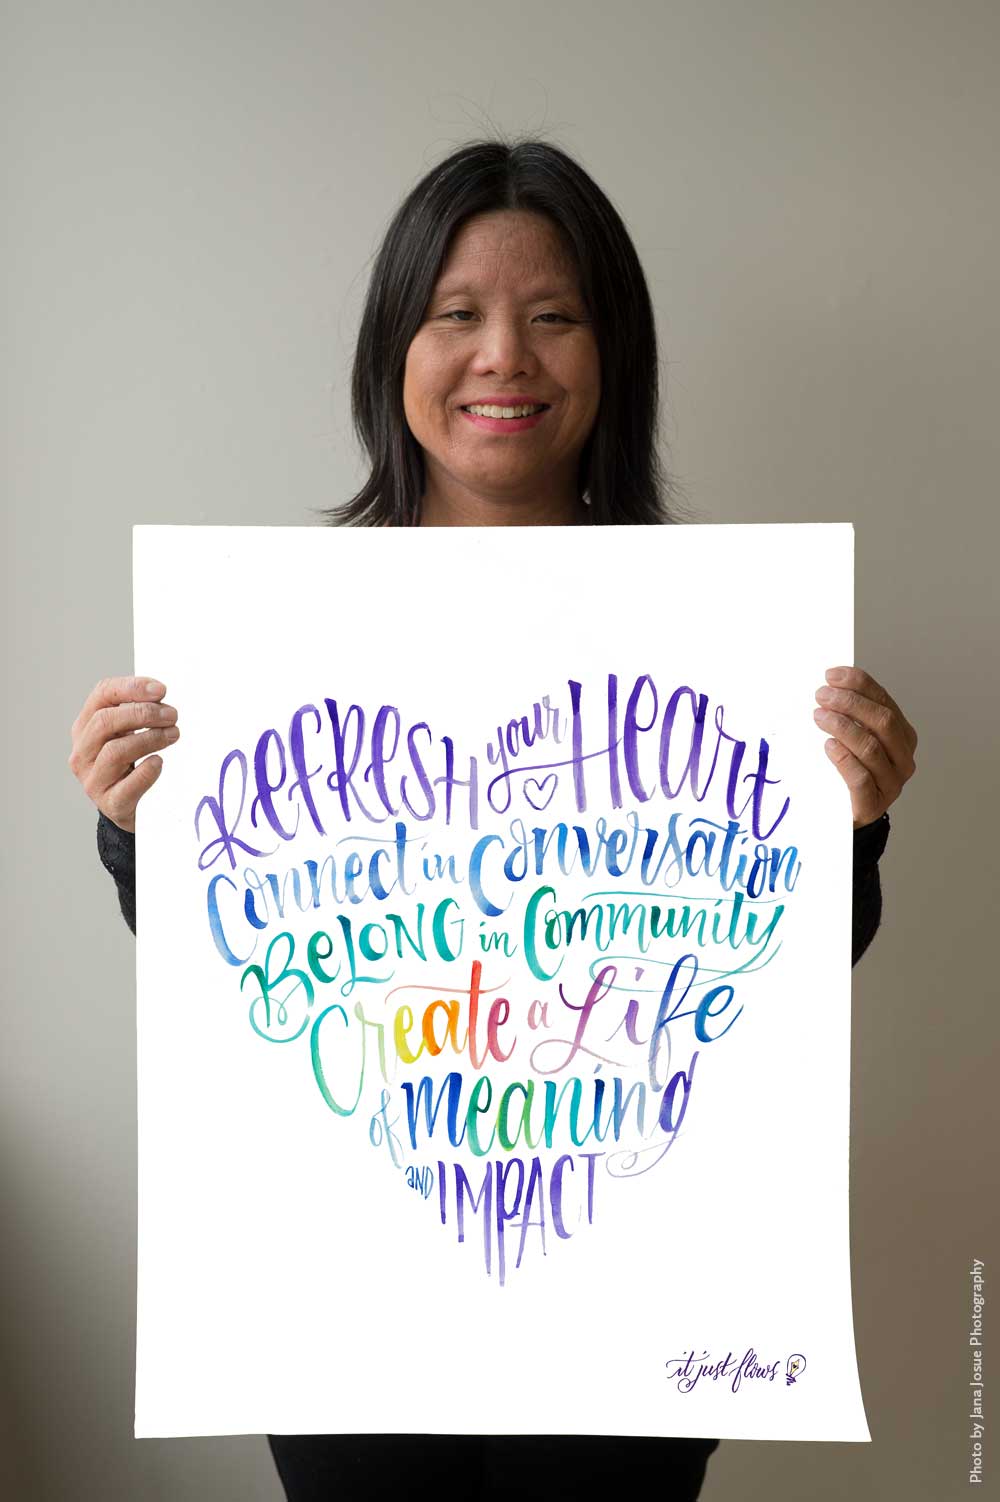 Refresh your Heart
Connect in Conversation
Belong in Community
Create a Life
of meaning
and IMPACT
it just flows
Photo by Jana Josue Photography